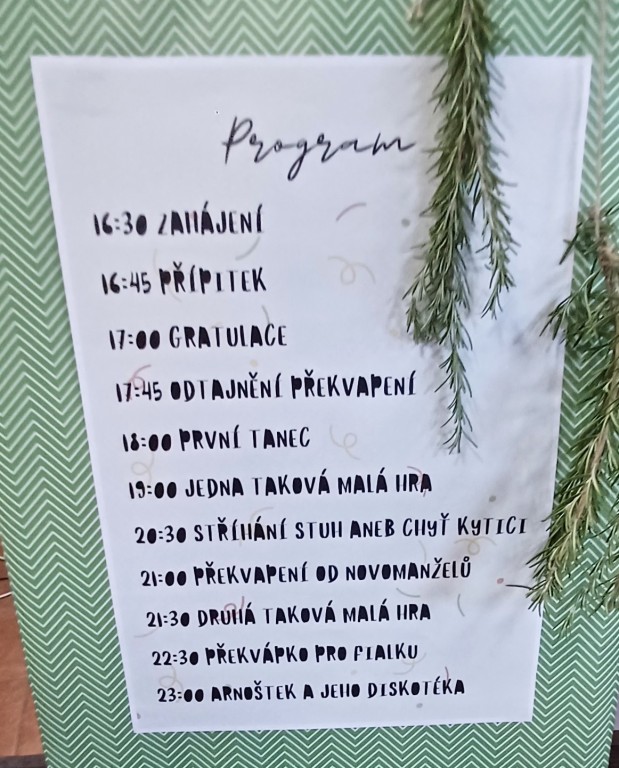 Program
16:30 ZAHÁJENÍ
16:45 PŘÍPITEK
17:00 GRATULACE
17:45 ODTAJNĚNÍ PŘEKVAPENÍ
18:00 PRVNÍ TANEC
19:00 JEDNA TAKOVÁ MALÁ HRA
20:30 STŘÍHÁNÍ STUH ANEB CHYŤ KYTICI
21:00 PŘEKVAPENÍ OD NOVOMANŽELŮ
21:30 DRUHÁ TAKOVÁ MALÁ HRA
22:30 PŘEKVÁPKO PRO FIALKU
23:00 ARNOŠTEK A JEHO DISKOTÉKA